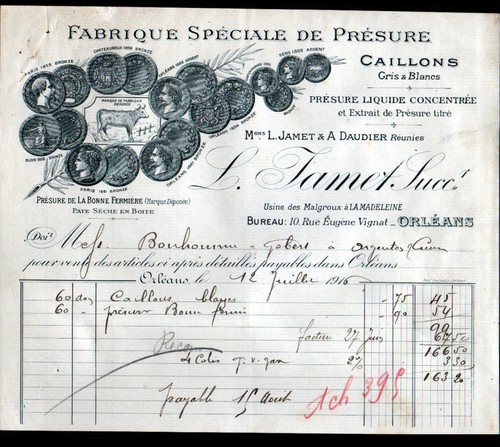 FABRIQUE SPÉCIALE DE PRÉSURE
CAILLONS
Gris & Blancs
PRÉSURE LIQUIDE CONCENTRÉE
et Extrait de Présure titré
MONS L. JAMET & A DAUDIER Reunies
L. Jamet, Succr
Usine des Malgroux à LA MADELEINE
BUREAU: 10, Rue Eugène Vignat – ORLÉANS
PARIS 1856 BRONZE
CHATEAUROUX 1858 BRONZE
ORLÉANS 1868 ARGENT
SENS 1859 ARGENT
BLOIS 1858 BRONZE
MARQUE DE FABRIQUE
DÉPOSÉE
PARIS 1861 BRONZE
PRÉSURE DE LA BONNE FERMIÈRE (Marque Déposée)
PATE SÈCHE EN BOITE
Doit Mess. Bonhomme - à Argentan
pour vente des articles ci après détaillés payables dans Orléans
Orléans, le 12 Juillet 1916
60 doz Caillons blancs 75 45
60 présure Bonne fermi 90 54
99
facture 27 Juin 67 50
166 50
4 Colis 2% 3 30
163 20
payable 15 Aout
1 ch 395